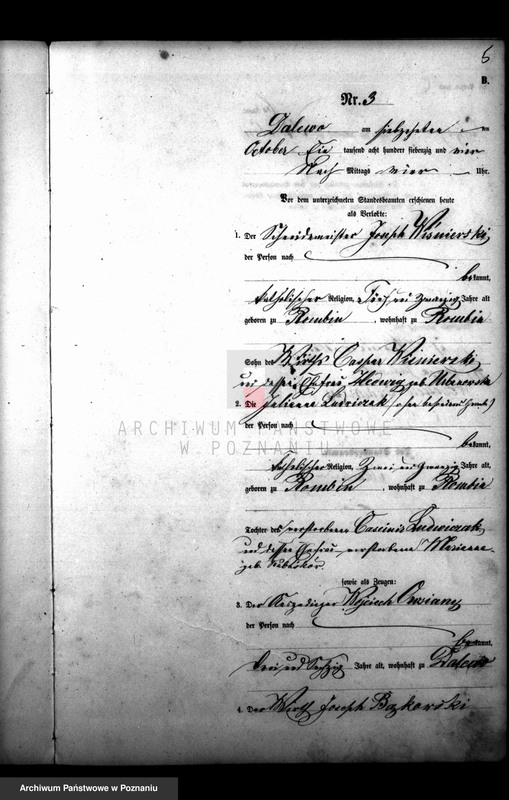 6
B.
Nr. 3
Dalewo am siebzehnten
October Ein tausend acht hundert siebenzig und vier
Nach Mittags vier Uhr.
Vor dem unterzeichneten Standesbeamten erschienen heute
als Verlobte:
1. Der Schneidemeister Joseph Wisnierski
der Person nach
bekannt,
katholischer Religion, Jahre alt
geboren zu Rombin, wohnhaft zu Rombin
Sohn des Wirths Casper Wisnierski
und dessen Ehefrau Hedwig geb. Urbanowska
2. Die Juliana Ludwiczak
der Person nach
bekannt,
katholischer Religion, Zwei und zwanzig Jahre alt,
geboren zu Rombin, wohnhaft zu Rombin
Tochter des verstorbenen Ludwiczak
und dessen Ehefrau verstorbene Marianne
geb.
sowie als Zeugen:
3. Der Wojciech
der Person nach
bekannt,
Drei und Sechzig Jahre alt, wohnhaft zu Dalewo
4. Der Wirth Joseph Bąkowski
ARCHIWUM PAŃSTWOWE
W POZNANIU
Archiwum Państwowe w Poznaniu